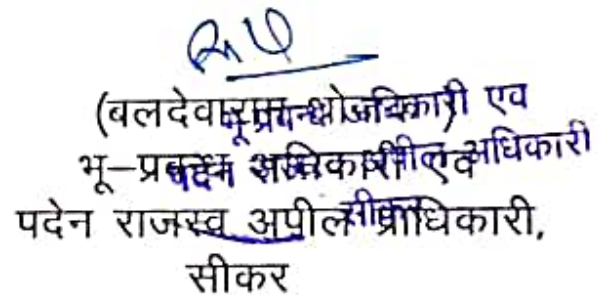 (बलदेवाराम भोजक)
भू–प्रबन्ध अधिकारी एवं
पदेन राजस्व अपील प्राधिकारी,
सीकर
भू प्रबन्ध अधिकारी एव
पदेन राजस्व अपील अधिकारी
सीकर